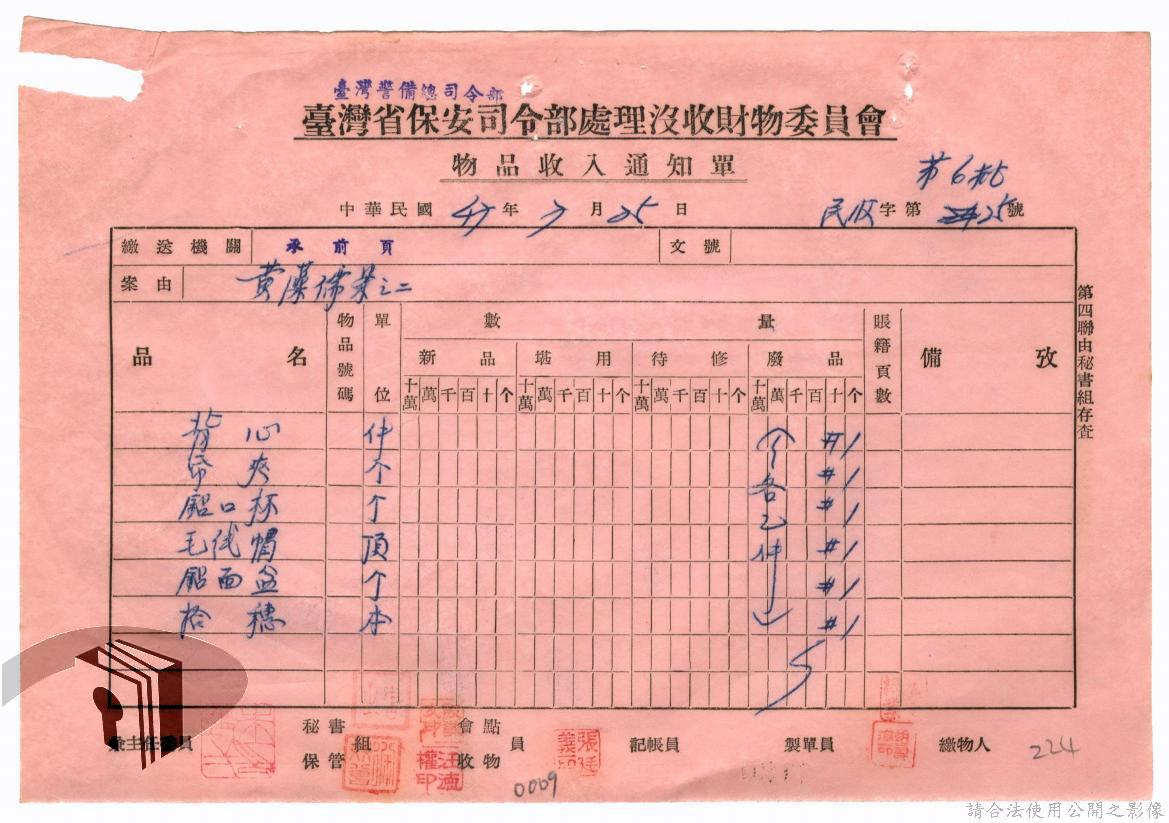 臺灣警備總司令部
臺灣省保安司令部處理沒收財物委員會
物品收入通知單
第6
中華民國 47年7月25日 民收字第25號
繳送機關 承前頁 文號
案由 黃 案之二
品名 物品號碼 單位 數量 賬籍頁數 備攷
新品 堪用 待修 廢品
十萬 萬 千 百 十 个 十萬 萬 千 百 十 个 十萬 萬 千 百 十 个 十萬 萬 千 百 十 个
背心 件 #1
夾 个 #1
鋁口杯 个 #1
毛 帽 頂 #1
鋁面盆 个 #1
拾穗 本 #1
(各乙件)
第四聯由秘書組存查
主任委員 秘書組 保管組 會點員 收物員 記帳員 製單員 繳物人
張廷義印
汪 權印
0009
224
請合法使用公開之影像